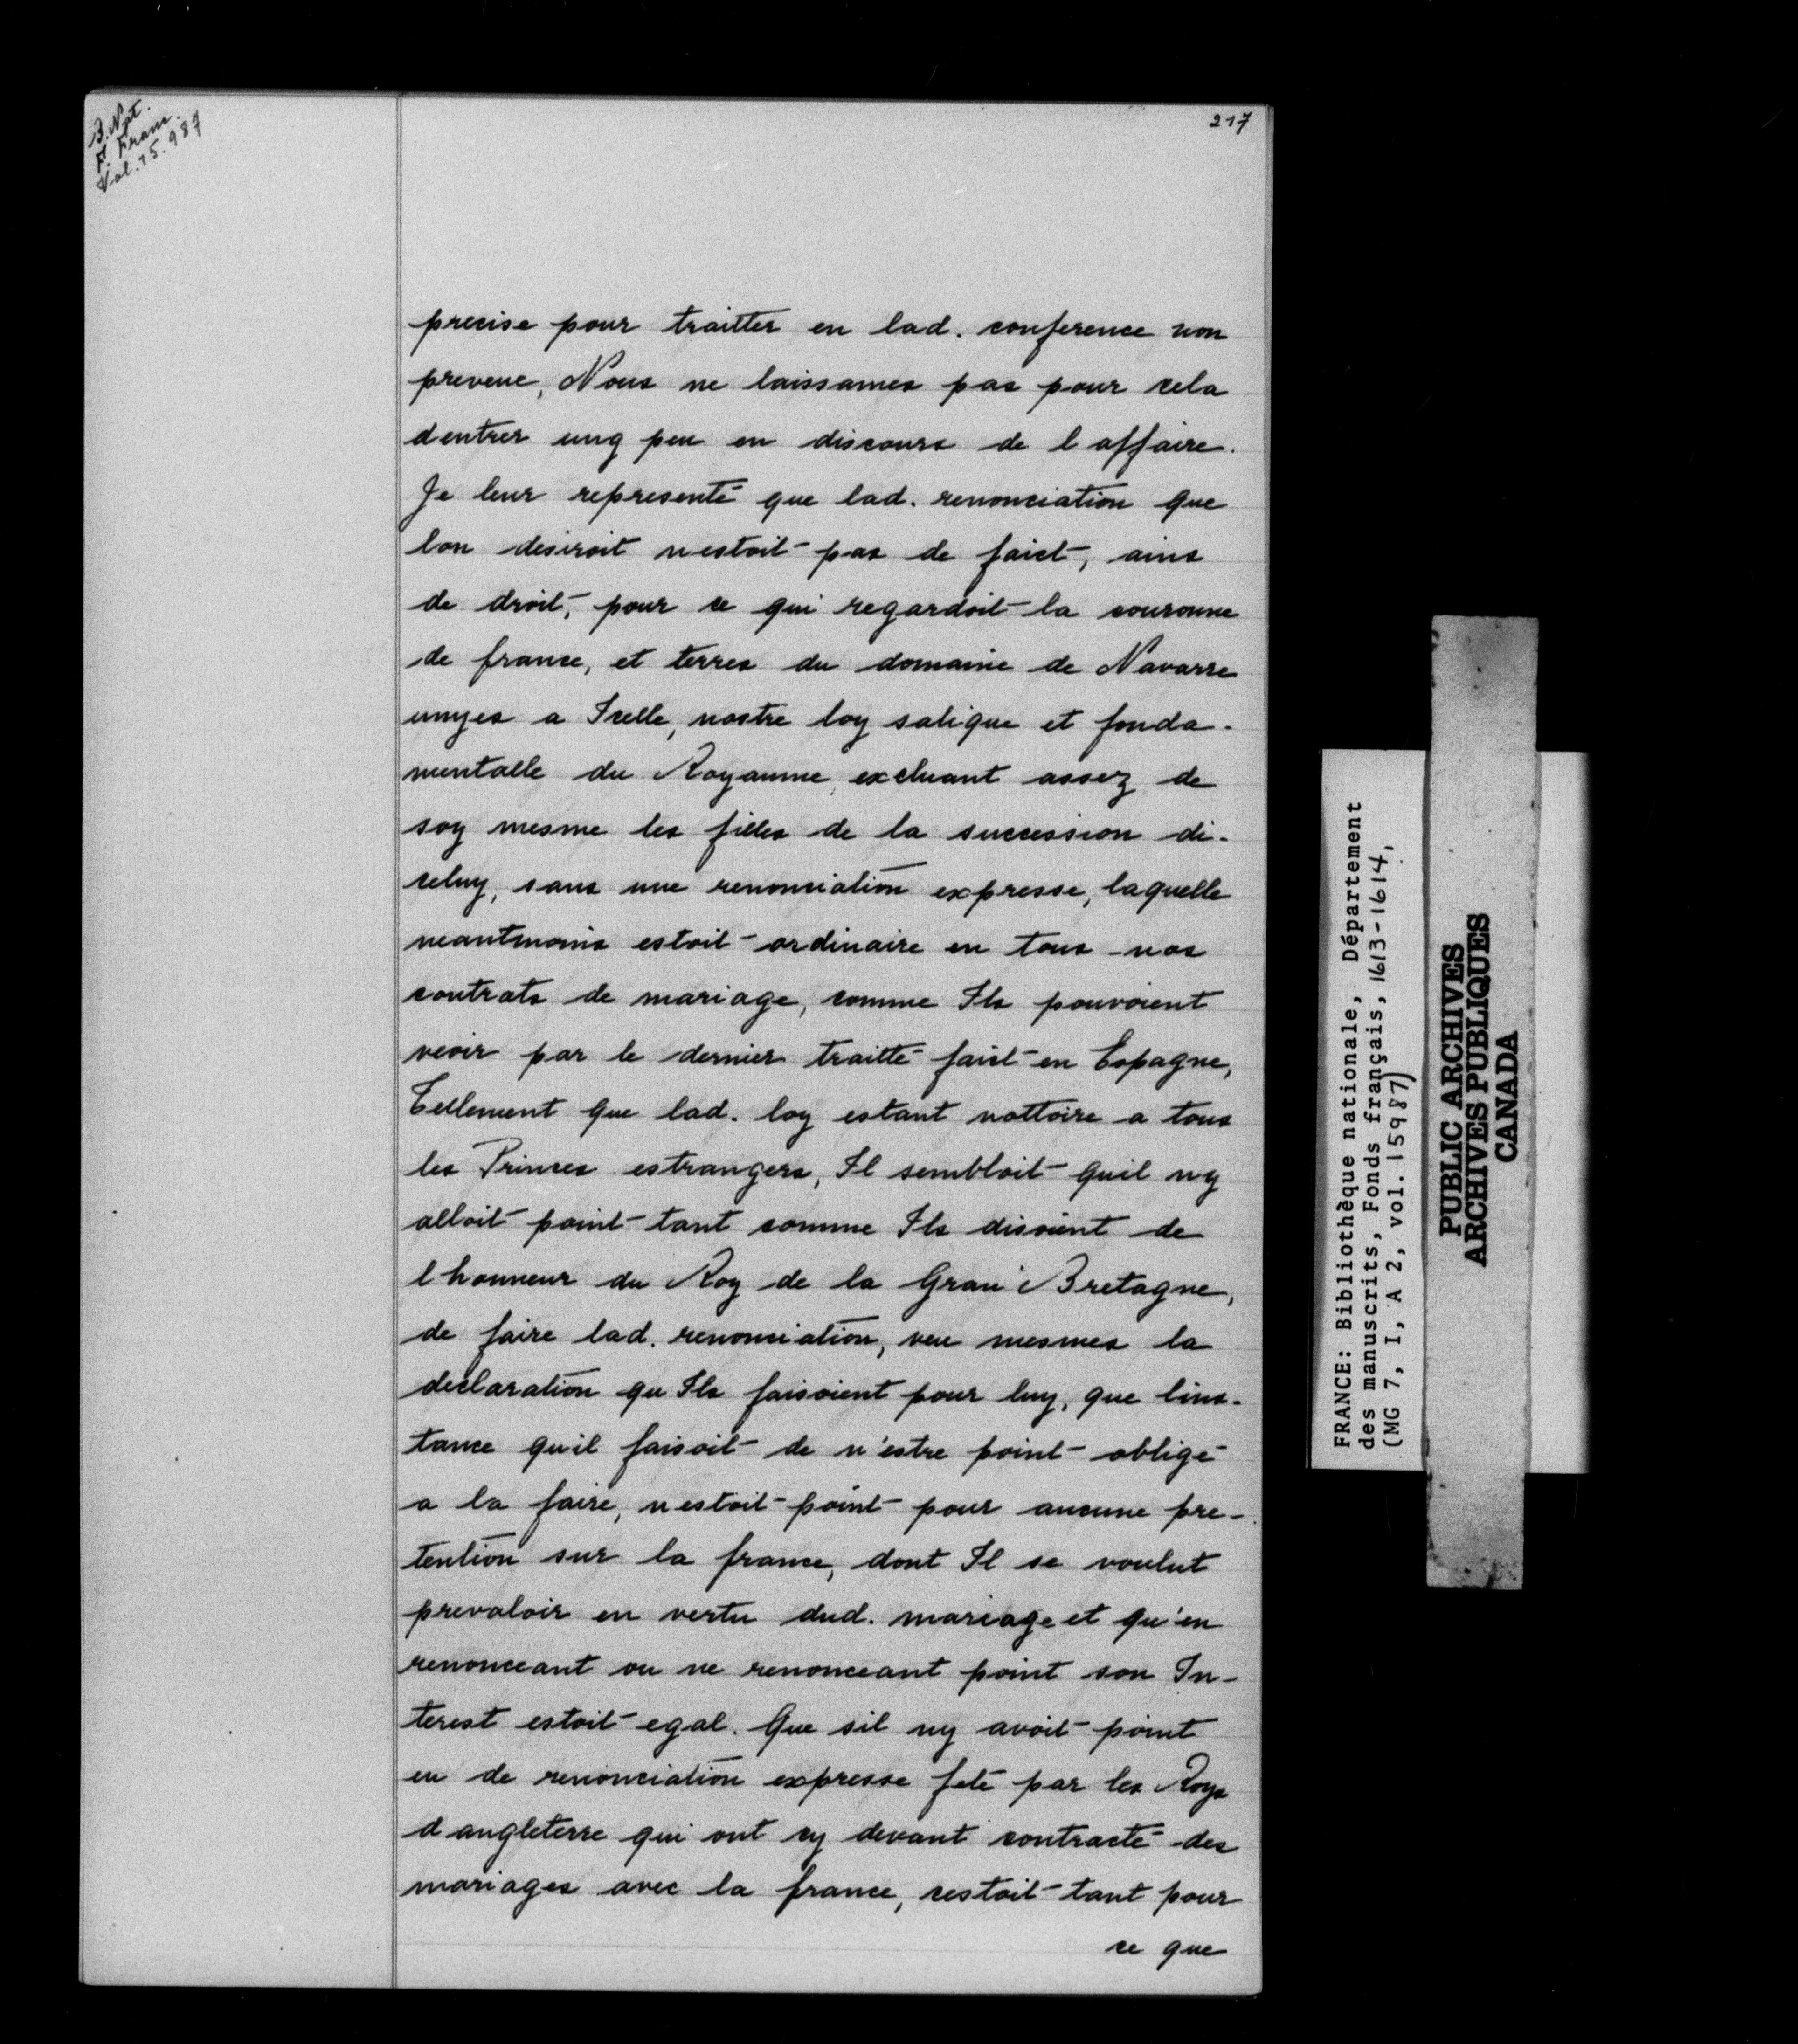 B. Nat.
F. Franc.
Vol. 15.987
217
precise pour traitter en lad. conference non
preveue, Nous ne laissames pas pour cela
dentrer ung peu en discours de l affaire.
Je leur representé que lad. renonciation que
lon desiroit nestoit pas de faict, ains
de droit, pour ce qui regardoit la couronne
de france, et terres du domaine de Navarre
unyes a Icelle, nostre loy salique et fonda-
mentalle du Royaume, excluant assez de
soy mesme les filles de la succession di-
celuy, sans une renonciation expresse, laquelle
neantmoins estoit ordinaire en tous nos
contrats de mariage, comme Ils pouvoient
veoir par le dernier traitté faict en Espagne,
Tellement que lad. loy estant nottoire a tous
les Princes estrangers, Il sembloit quil ny
alloit point tant comme Ils disoient de
l honneur du Roy de la Gran Bretagne,
de faire lad. renonciation, veu mesmes la
declaration qu Ils faisoient pour luy, que lins-
tance quil faisoit de n'estre point obligé
a la faire, nestoit point pour aucune pre-
tention sur la france, dont Il se voulut
prevaloir en vertu dud. mariage et qu'en
renonceant ou ne renonceant point son In-
terest estoit egal. Que sil ny avoit point
eu de renonciation expresse fete par les Roys
d angleterre qui ont cy devant contracté des
mariages avec la france, cestoit tant pour
ce que
FRANCE: Bibliothèque nationale, Département
des manuscrits, Fonds français, 1613-1614,
(MG 7, I, A 2, vol. 15987)
PUBLIC ARCHIVES
ARCHIVES PUBLIQUES
CANADA